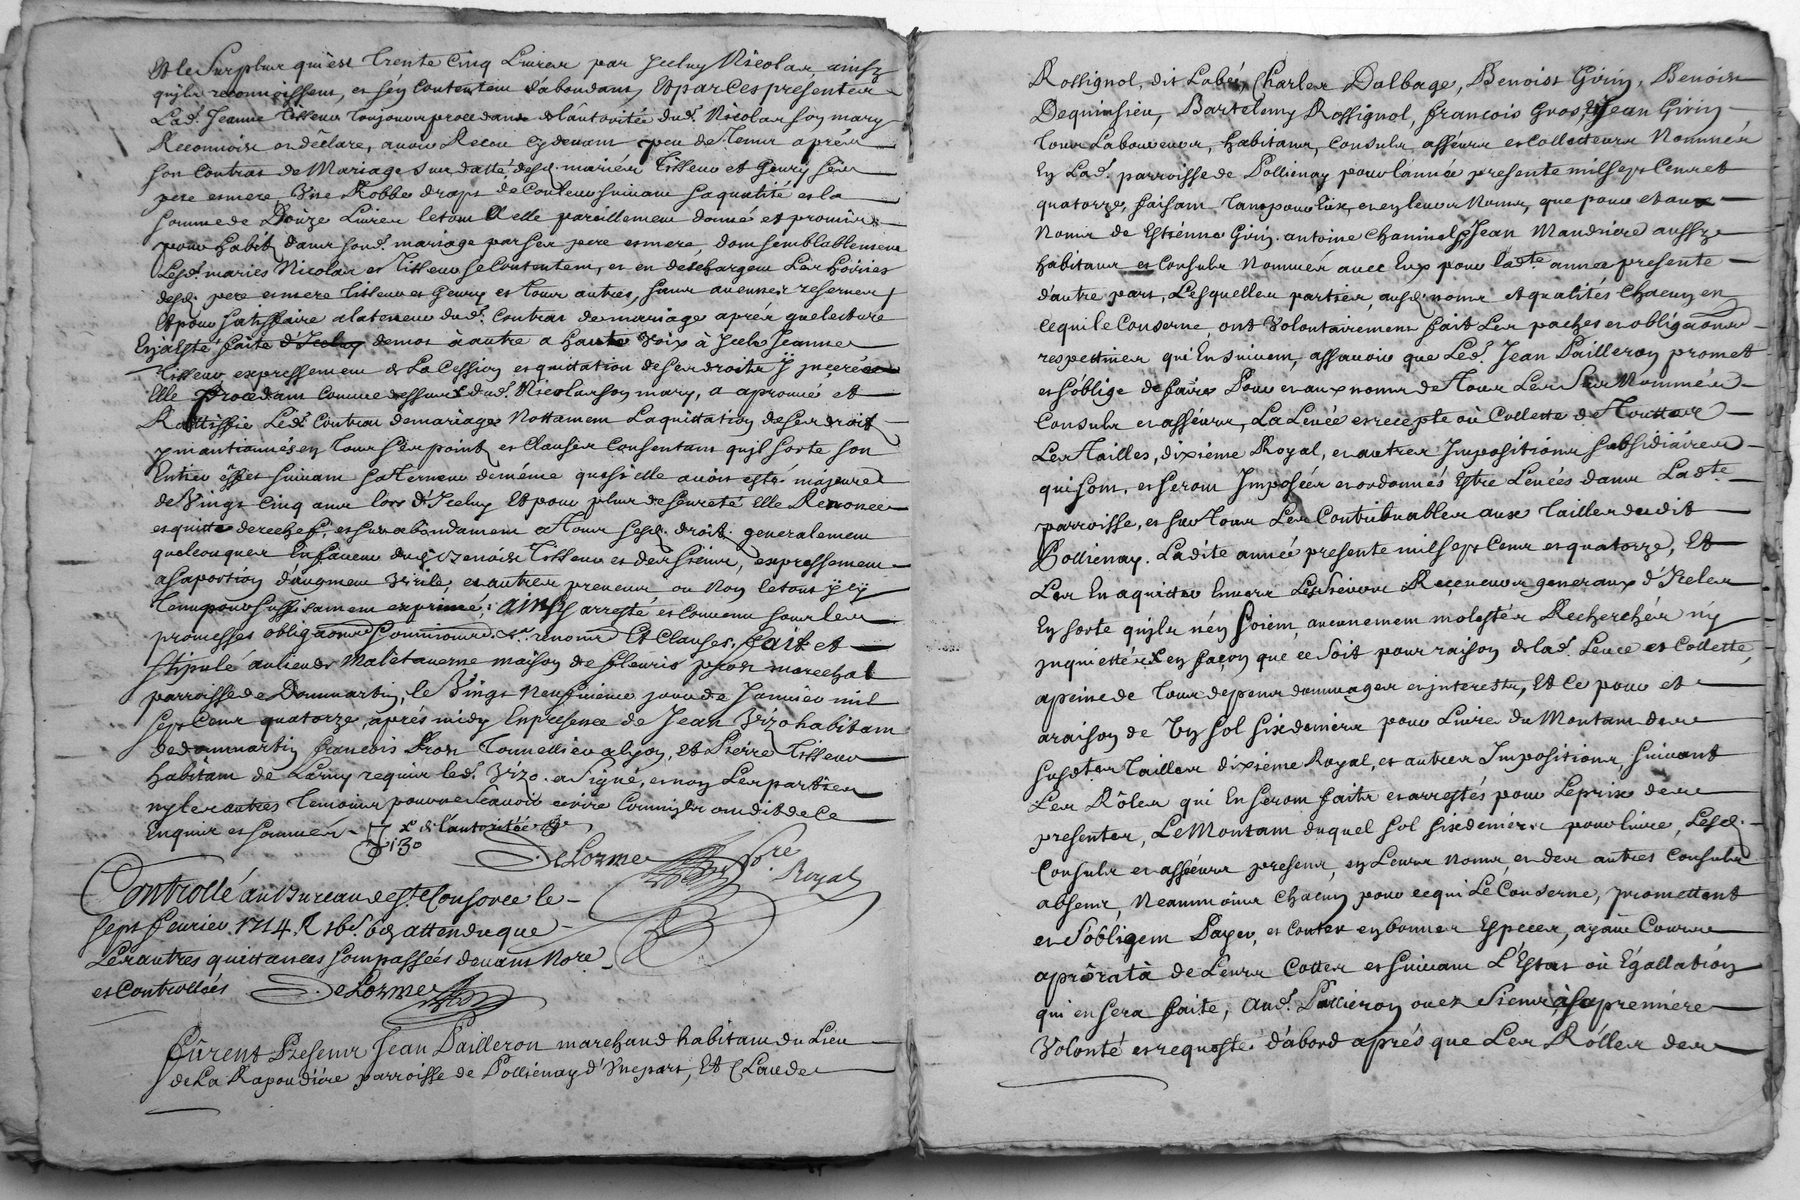 Et le surplus qui est trente cinq Livres par Jceluy Nicolas, ainsy
qu'jls reconnoissent, et s'en contentent d'abondans, Et par ces presentes
Lad. Jeanne Tisseur Toujours procedans de l'autorité dud. Nicolas son mary
Reconnoist et déclare, avoir Receu cy devant peu de Tems aprés
son Contrat de Mariage susdatté, desd. mariés Tisseur et Geury ses
pere et mere, Une Robbe draps de Couleur suivant sa qualité et la
somme de Douze Livres le tout a elle pareillement donné et promis
pour habit dans sond. mariage par ses pere et mere dont semblablement
Lesd. mariés Nicolas et Tisseur se Contentent, et en deschargent Les hoiries
desd. pere et mere Tisseur et Geury et tous autres, sans aucunes reserves,
Et pour satisfaire a la teneur dud. Contrat de mariage aprés que lecture
En a esté faite d'Jceluy de mot à autre a haute voix à Jcelle Jeanne
Tisseur expressement de La Cession et quittation de ses droits y jnserée
Elle procedant comme dessus dud. Nicolas son mary, a aprouvé et
Rattiffie Led. Contrat de mariage Nottament La quittation de ses droits
y mantionnés en Tous ses points et Clauses Consentant qu'jl sorte son
Entier effet suivant sa Teneur de méme que si elle avoit esté majeure
de Vingt Cinq ans lors d'Jceluy Et pour plus de seureté elle Renonce
et quitte derechef, et surabondament a Tous sesd. droits generalement
quelconques En faveur dud. Benoist Tisseur et des siens, expressement
a sa portion d'augment Virile, et autres preneus, ou Non le tout y
Tenu pour suffisament exprimé; ainsy arresté et convenu sous les
promesses obligaons soumissions &a. renons Et Clauses. fait et
stipulé au lieu de Malétaverne maison de fleuris pion marechal
parroisse de Dommartin, le Vingt Neufvieme jour de Janvier mil
sept Cens quatorze, aprés midy En presence de Jean Brizo habitant
de dommartin francois Tonnellier a lyon, et Pierre Tisseur
habitant de Larny requis led. Brizo a signé, et non Les parties
ny les autres Temoins pour ne Scavoir ecrire Comme jls ont dit de ce
Enquis et sommés. x de l'autorité
Brizo
DeLorme No.re Royal
Controllé au Bureau de Ste Consorce le
Sept fevrier 1714. R attendu que
Les autres quittances sont passées devant No.re
et Controllées DeLorme
Fûrent Presens Jean Pailleron marchand habitant du Lieu
de La Rapoudiére parroisse de Pollienay d'Une part, Et Claude
Rossignol, dit Labé, Charles Dalbage, Benoist Girin, Benoist
Dequinsieu, Bartelemy Rossignol, francois Gros, et Jean Girin
Tous Laboureurs, habitans, Consuls, asséeurs et Collecteurs Nommés
En Lad. parroisse de Pollienay pour l'année presente mil sept Cens et
quatorze, faisant Tant pour Eux, et en leurs Noms, que pour et aux
Noms de Estienne Girin, antoine Chaninel, et Jean Mandriére aussy
habitans et Consuls Nommés avec Eux pour ladte. année presente
d'autre part, Lesquelles parties ausd. noms et qualités chacun en
ce qui le Conserne, ont Volontairement fait Les paches et obligaons
respectives qui En suivent, assavoir que Led. Jean Pailleron promet
et s'oblige de faire Pour et aux noms de Tous Les Sus Nommés
Consuls et asséeurs, La Levée et recepte ou Collette de Touttes
Les Tailles, dixiéme Royal, et autres Jmpositions subsidiaires
qui sont, et seront Jmposées et ordonnés Estre Levées dans Ladte.
parroisse, et sur Tous Les Contribuables aux Tailles dudit
Pollienay, Ladite année presente mil sept Cens et quatorze, Et
Les En aquitter Envers Les Sieurs Receveurs generaux d'Jcelles
En sorte qu'jls n'en soient, aucunement molestés Recherchés ny
jnquiettés en façon que ce Soit pour raison de lad. Levée et Collette,
a peine de Tous depens dommages et jnterests, Et ce pour et
a raison de Un sol six deniers pour Livre du Montant des
susdtes Tailles dixieme Royal, et autres Jmpositions, suivant
Les Rôles qui En seront faits et arrestés pour Le prix des
presentes, Le Montant duquel sol six deniers pour livre, Lesd.
Consuls et asséeurs presens, en Leurs Noms et des autres Consuls
absens, Neanmoins chacun pour ce qui Le Conserne, promettent
et s'obligent Payer, et Conter en bonnes Especes, ayant Cours
a prôratà de Leurs Cottes et suivant L'Estat ou Egallation
qui en sera faite, aud. Pallieron ou ez Siens à sa premiere
Volonté et requeste d'abord aprés que Les Rôlles des